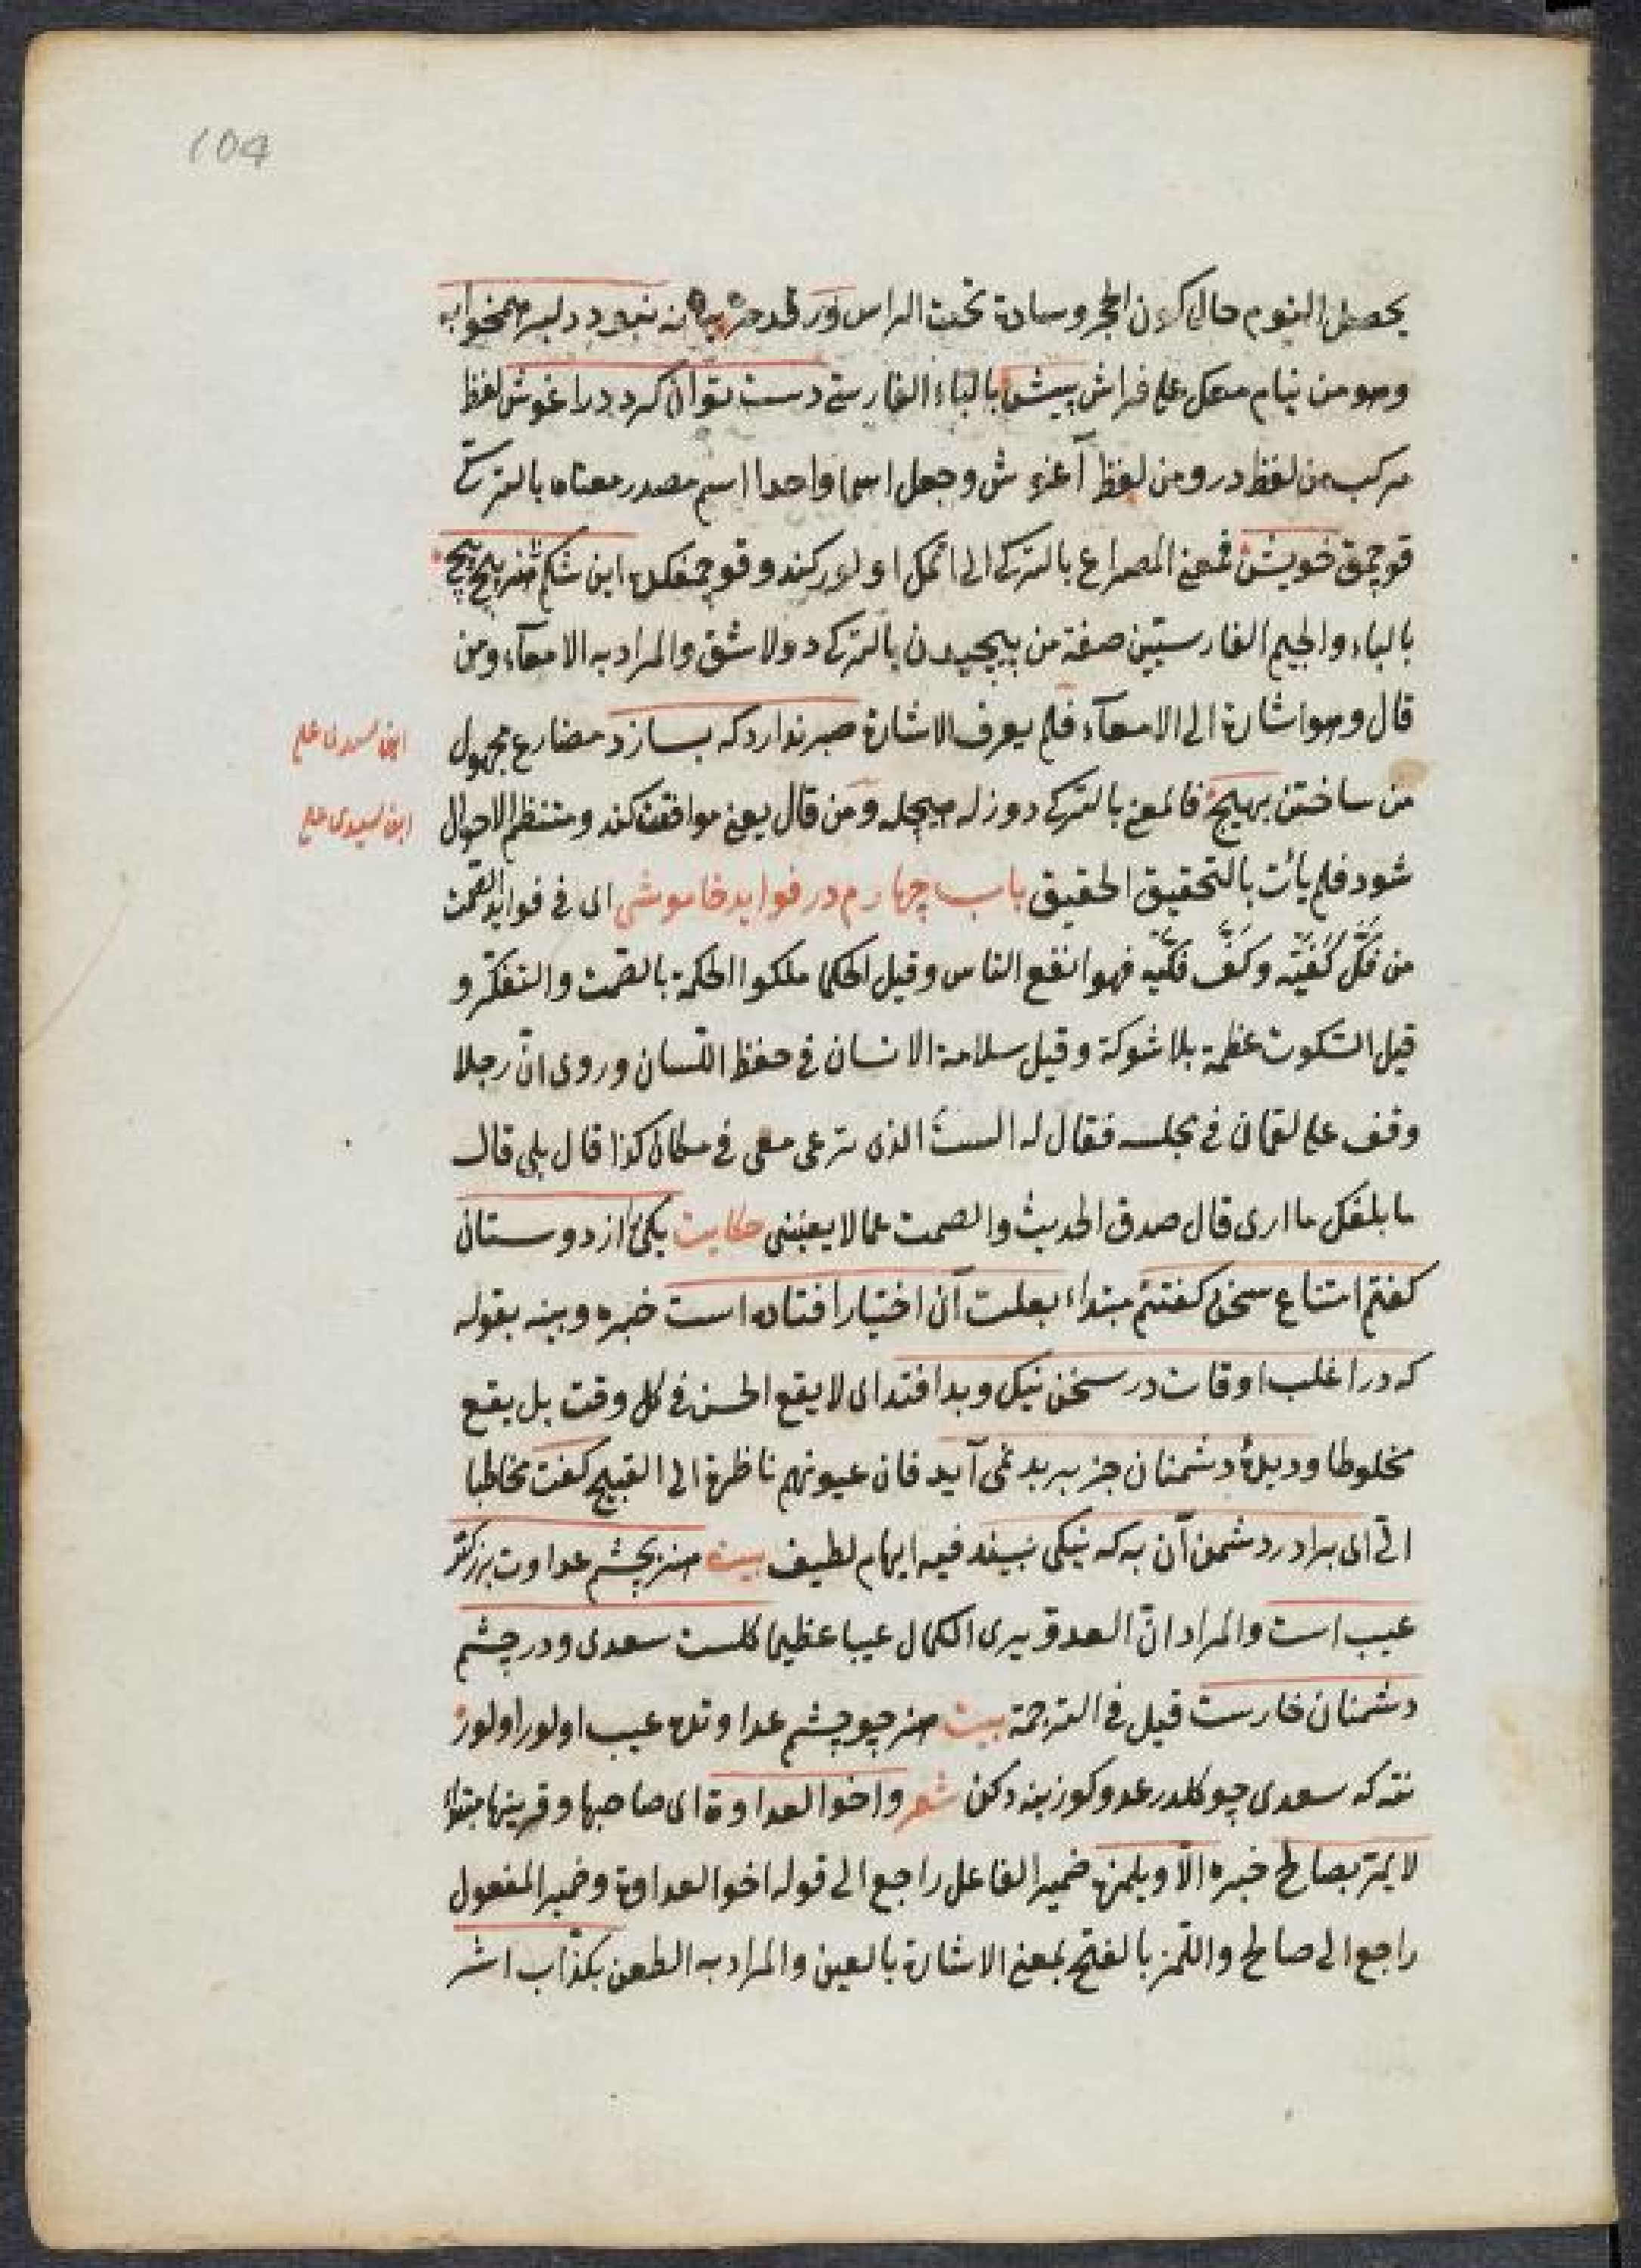 104
يحصل النوم حال كون الحجر وسادة تحت الراس ور نبود دلبر همخوابه
وهو من ينام معك على فراش پيش بالباء الفارسى دست توان كرد در اغوش لفظ
مركب من لفظ در ومن لفظ آغوش وجعل اسما واحدا اسم مصدر معناه بالتركى
قوچمق خويش فمعنى المصراع بالتركى الى اولور كندو قوچمغكله اين شكم بى هنر پيچ پيچ
بالباء والجيم الفارسيتين صفة من پيچيدن بالتركى دولاشق والمراد به الامعآء ومن
قال وهو اشارة الى الامعآء فلم يعرف الاشارة صبر ندارد كه بسازد مضارع مجهول
ابن سيدى على
من ساختن بهيچ فالمعنى بالتركى دوزله هيچله ومن قال يعنى موافقت كند ومنتظم الاحوال
ابن سيدى على
شود فلم يأت بالتحقيق الحقيق باب چهارم در فوايد خاموشى اى فى فوايد الصمت
من فكّ كفّيه وكفّ فكّيه فهو انفع الناس وقيل الحكما ملكوا الحكمة بالصمت والتفكّر و
قيل السّكوت عظمة بلا شوكة وقيل سلامة الانسان فى حفظ اللّسان وروى انّ رجلا
وقف على لقمان فى مجلسه فقال له الستَ الذى ترعى معى فى مكان كذا قال بلى قال
ما بلغك ما ارى قال صدق الحديث والصمت عما لا يعنينى حكايت يكى را از دوستان
كفتم امتناع سخن كفتنم مبتداء بعلت آن اختيار افتاده است خبره وبينه بقوله
كه در اغلب اوقات در سخن نيك وبد افتد اى لا يقع الحسن فى كل وقت بل يقع
مخلوطا وديدۀ دشمنان جز بر بد نمى آيد فان عيونهم ناظرة الى القبيح كفت مخاطبا
الىّ اى برادر دشمن آن به كه نيكى نبيند فيه ايهام لطيف بيت هنر بچشم عداوت بزركتر
عيب است والمراد انّ العدوّ يرى الكمال عيبا عظيما كلست سعدى ودر چشم
دشمنان خارست قيل فى الترجمة بيت هنر چو چشم عداوتده عيب اولور اولور
نته كه سعدى چو كلدر عدو كوزينه دكن شعر واخوا العداوة اى صاحبها وقرينها مبتداء
لا يمرّ بصالح خبره الّا ويلمزه ضمير الفاعل راجع الى قوله اخوا العداوة وضمير المفعول
راجع الى صالح واللّمز بالفتح بمعنى الاشارة بالعين والمراد به الطعن بكذّاب اشر